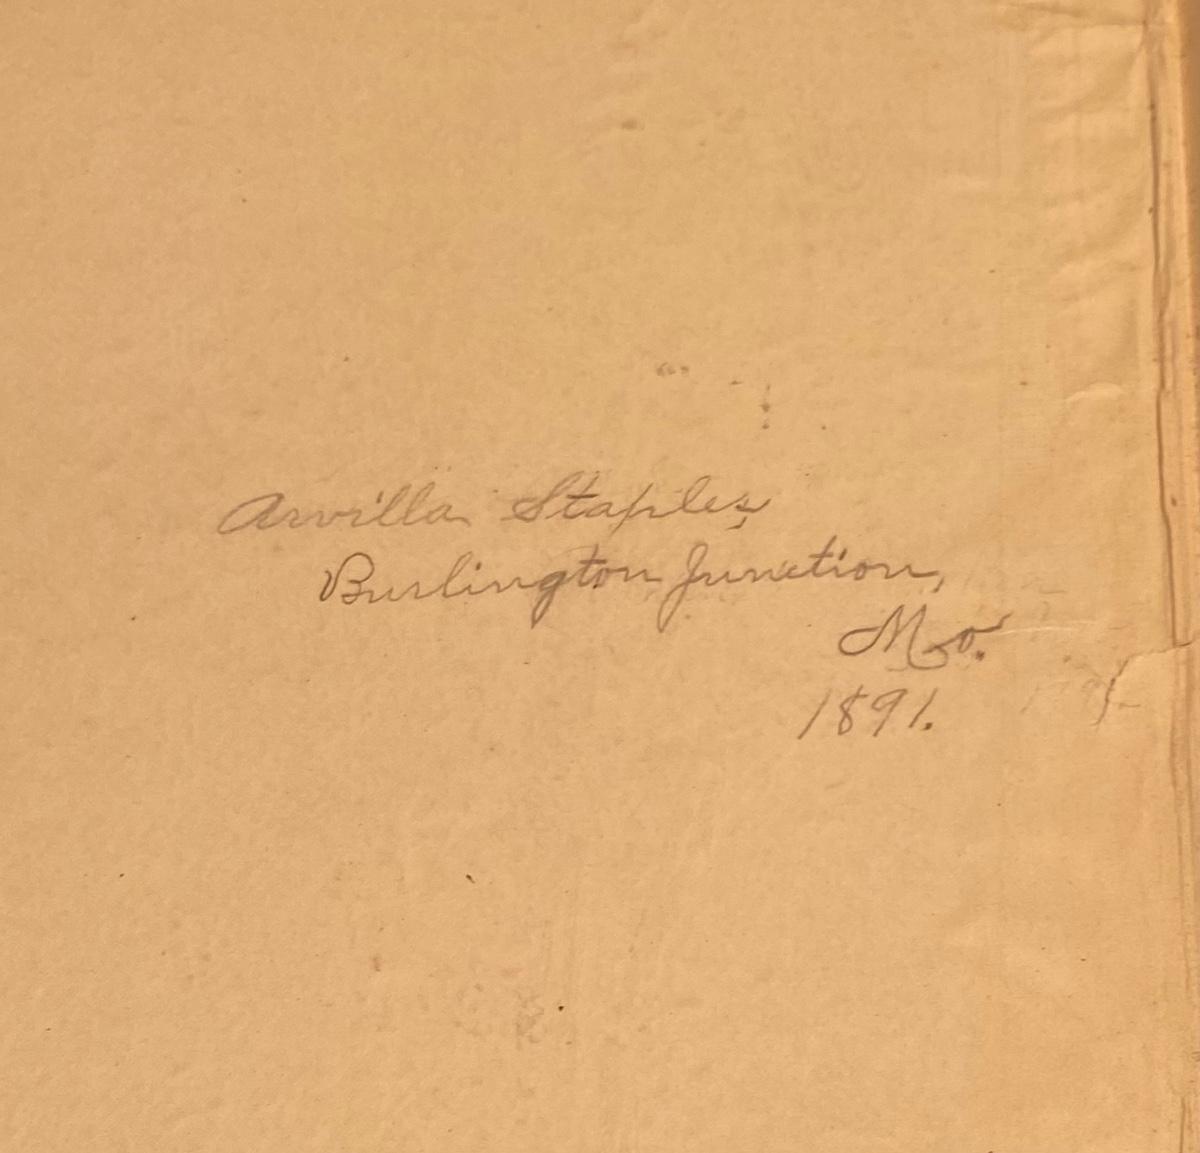 Arvilla Staples,
Burlington Junction,
Mo.
1891.